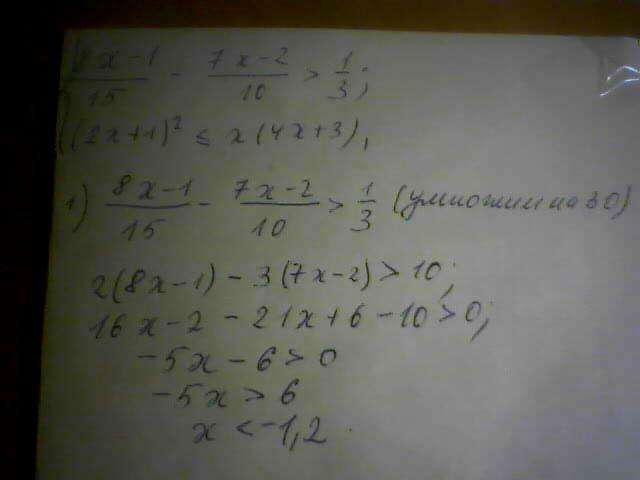 { (8x-1)/15 - (7x-2)/10 > 1/3;
(2x+1)² ≤ x(4x+3),
1) (8x-1)/15 - (7x-2)/10 > 1/3 (умножим на 30)
2(8x-1) - 3(7x-2) > 10;
16x-2 - 21x+6 -10 > 0;
-5x-6 > 0
-5x > 6
x < -1,2